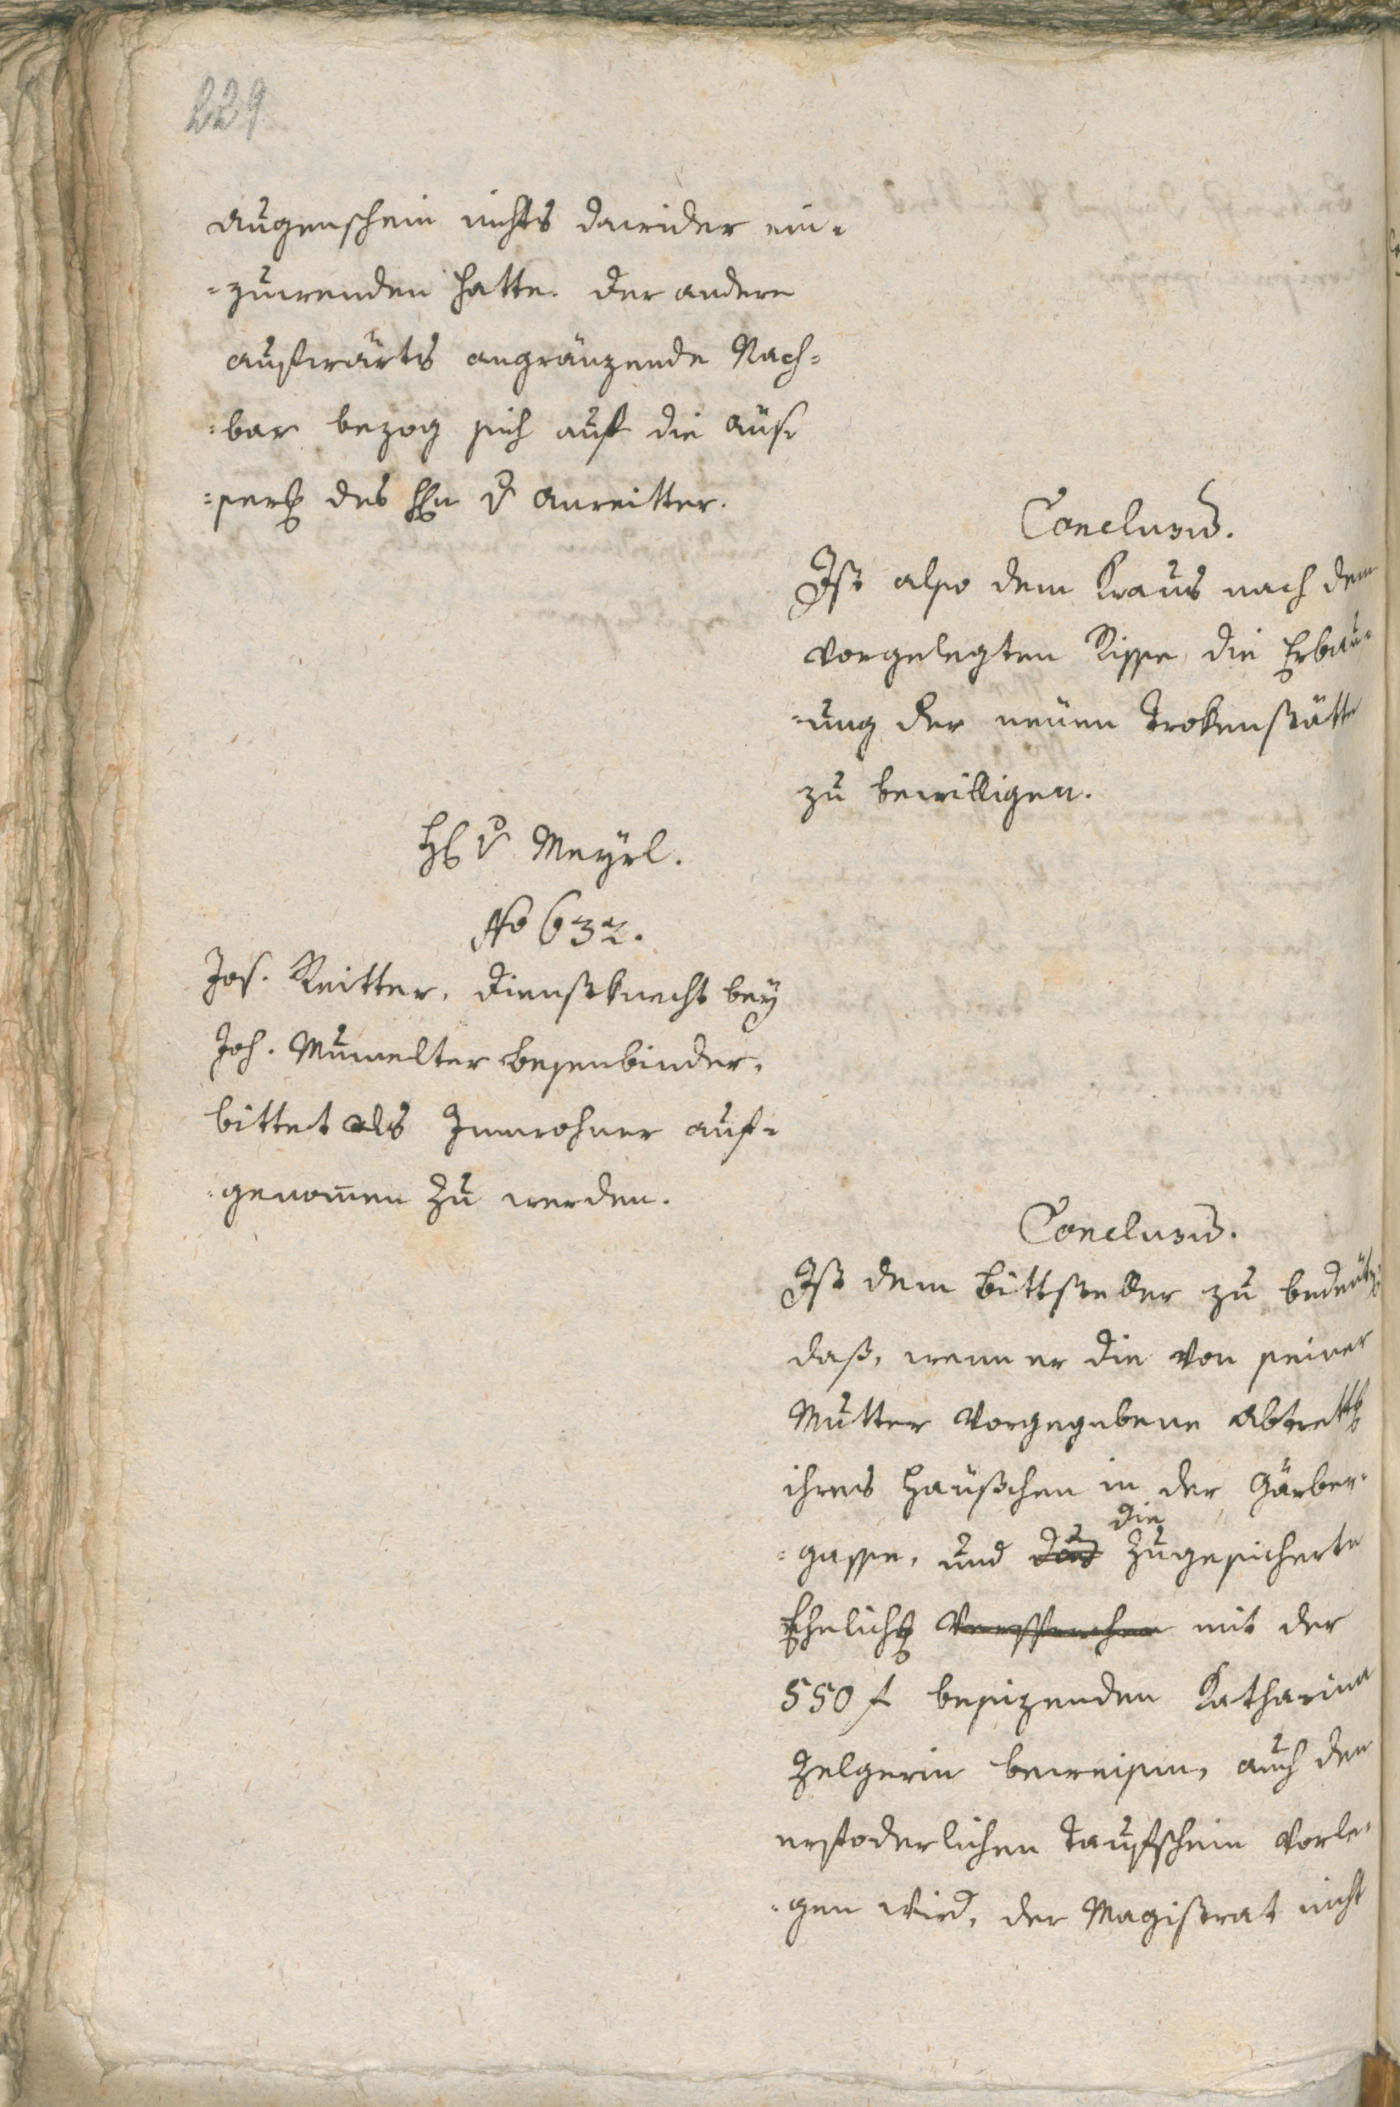 229
Augenschein nichts darwider ein-
-zuwenden hatte. Der andere
auswärts angränzende Nach-
-bar bezog sich auf die Aüs-
-serg des Hn v Anreitter.
Conclusum.
Ist also dem Kraus nach dem
vorgelegten Risse, die Erbau-
-ung der neüen Trokenstätte
zu bewilligen.
H v Meyrl.
No 632.
Jos. Reitter, Dienstknecht bey
Joh. Mumelter Besenbinder,
bittet als Innwohner auf-
-genommen zu werden.
Conclusum.
Ist dem Bittsteller zu bedeüten
daß, wenn er die von seiner
Mutter vorgegebene Abtrettg
ihres Haüßchen in der Gärber-
-gasse, und das die zugesicherte
Ehelichg Versprechen mit der
550 f besizenden Katharina
Zelgerin beweisen, auch den
erfoderlichen Taufschein vorle-
-gen wird, der Magistrat nicht